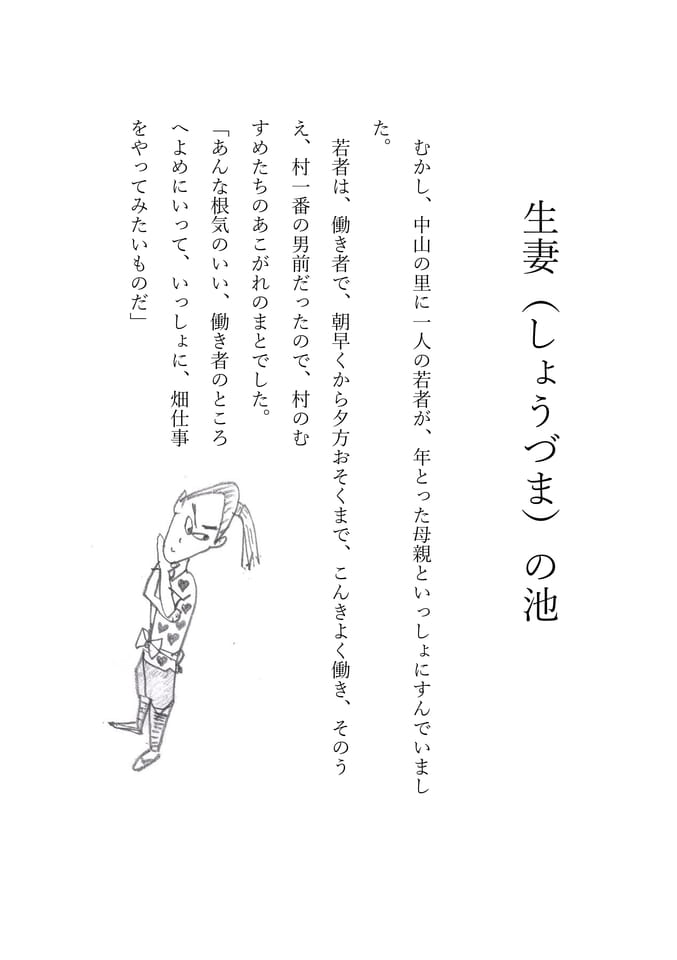 生妻（しょうづま）の池
むかし、中山の里に一人の若者が、年とった母親といっしょにすんでいまし
た。
若者は、働き者で、朝早くから夕方おそくまで、こんきよく働き、そのう
え、村一番の男前だったので、村のむ
すめたちのあこがれのまとでした。
「あんな根気のいい、働き者のところ
へよめにいって、いっしょに、畑仕事
をやってみたいものだ」